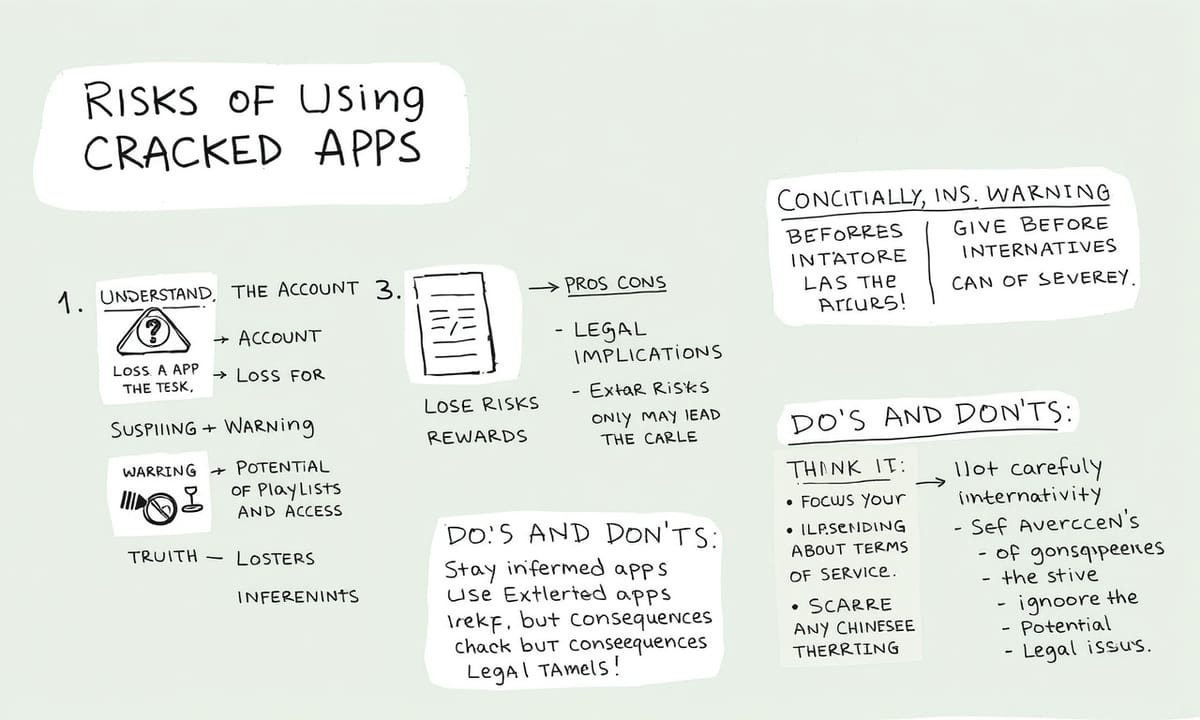 RISKS OF Using
CRACKED APPS
1. UNDERSTAND. THE ACCOUNT
?
→ ACCOUNT
LOSS A APP
THE TESK.
→ LOSS FOR
SUSPIIING + WARNing
WARRING → POTENTIAL
OF PlayLists
AND ACCESS
TRUITH — LOSTERS
INFERENINTS
3.
→ PROS CONS
- LEGAL
IMPLICATIONS
- ExtaR RISKS
ONLY MAY IEAD
THE CARLE
LOSE RISKS
REWARDS
DO.'S AND DON'TS:
Stay infermed apps
Use Extlerted apps
Irekf, but Consequences
chack but conseequences
LegAl TAmels!
CONCITIALLY, INS. WARNING
BEFORRES
INTATORE
LAS THE
GIVE BEFORE
INTERNATIVES
CAN OF SEVEREY.
DO'S AND DON'TS:
THINK IT:
• FOCUS YOUR
ABOUT TERMS
OF SERVICE.
• SCARRE
ANY CHINESEE
THERRTING
→ llot carefuly
internativity
- Sef Averccen's
- of gonsqpeenes
- the stive
- ignoore the
- Potential
- Legal issus.